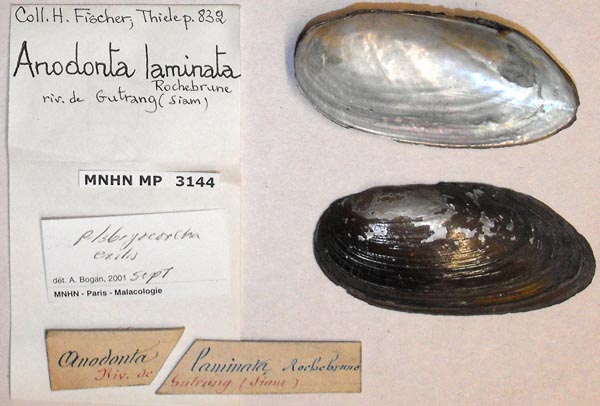 Coll. H. Fischer, Thiele p. 832
Anodonta laminata
Rochebrune
riv. de Gutrang (Siam)
MNHN MP 3144
exilis
dét. A. Bogan, 2001 Sept
MNHN - Paris - Malacologie
Anodonta laminata Rochebrune
Riv. de Gutrang (Siam)